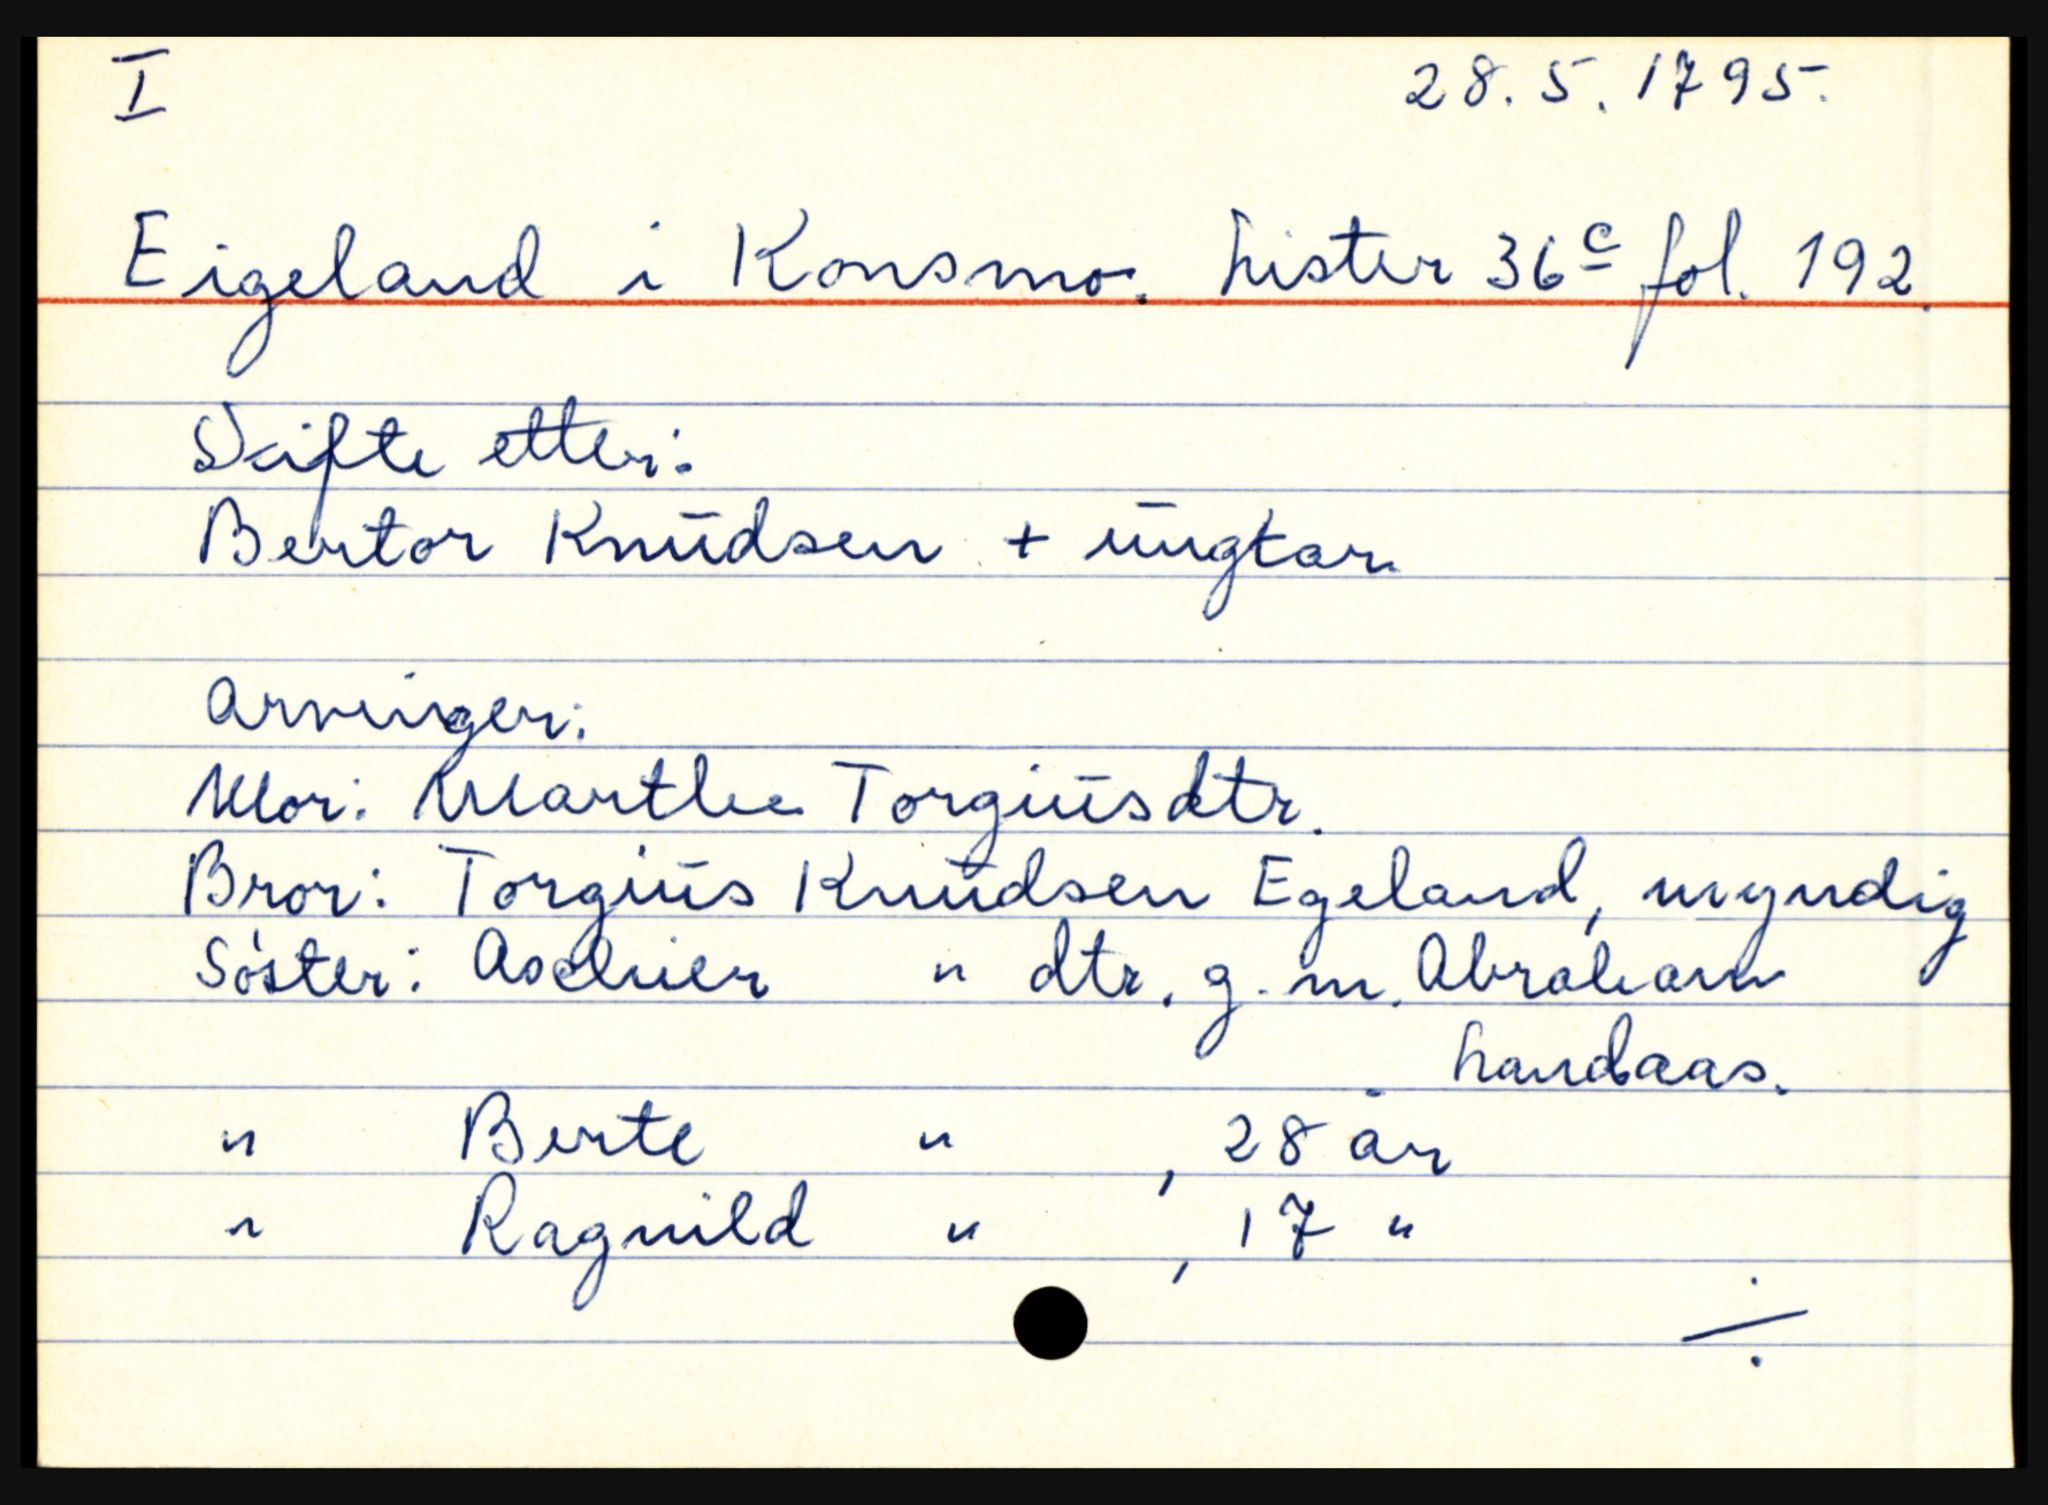 I 28.5.1795.
Eigeland i Konsmo. Lister 36c fol. 192.
Skifte etter:
Bertor Knudsen + ungkar.
Arvinger:
Mor: Marthe Torgiusdtr.
Bror: Torgius Knudsen Egeland, myndig
Søster: " dtr. g. m. Abraham
Landaas.
" Berte " , 28 år
" Ragnild " , 17 "
÷